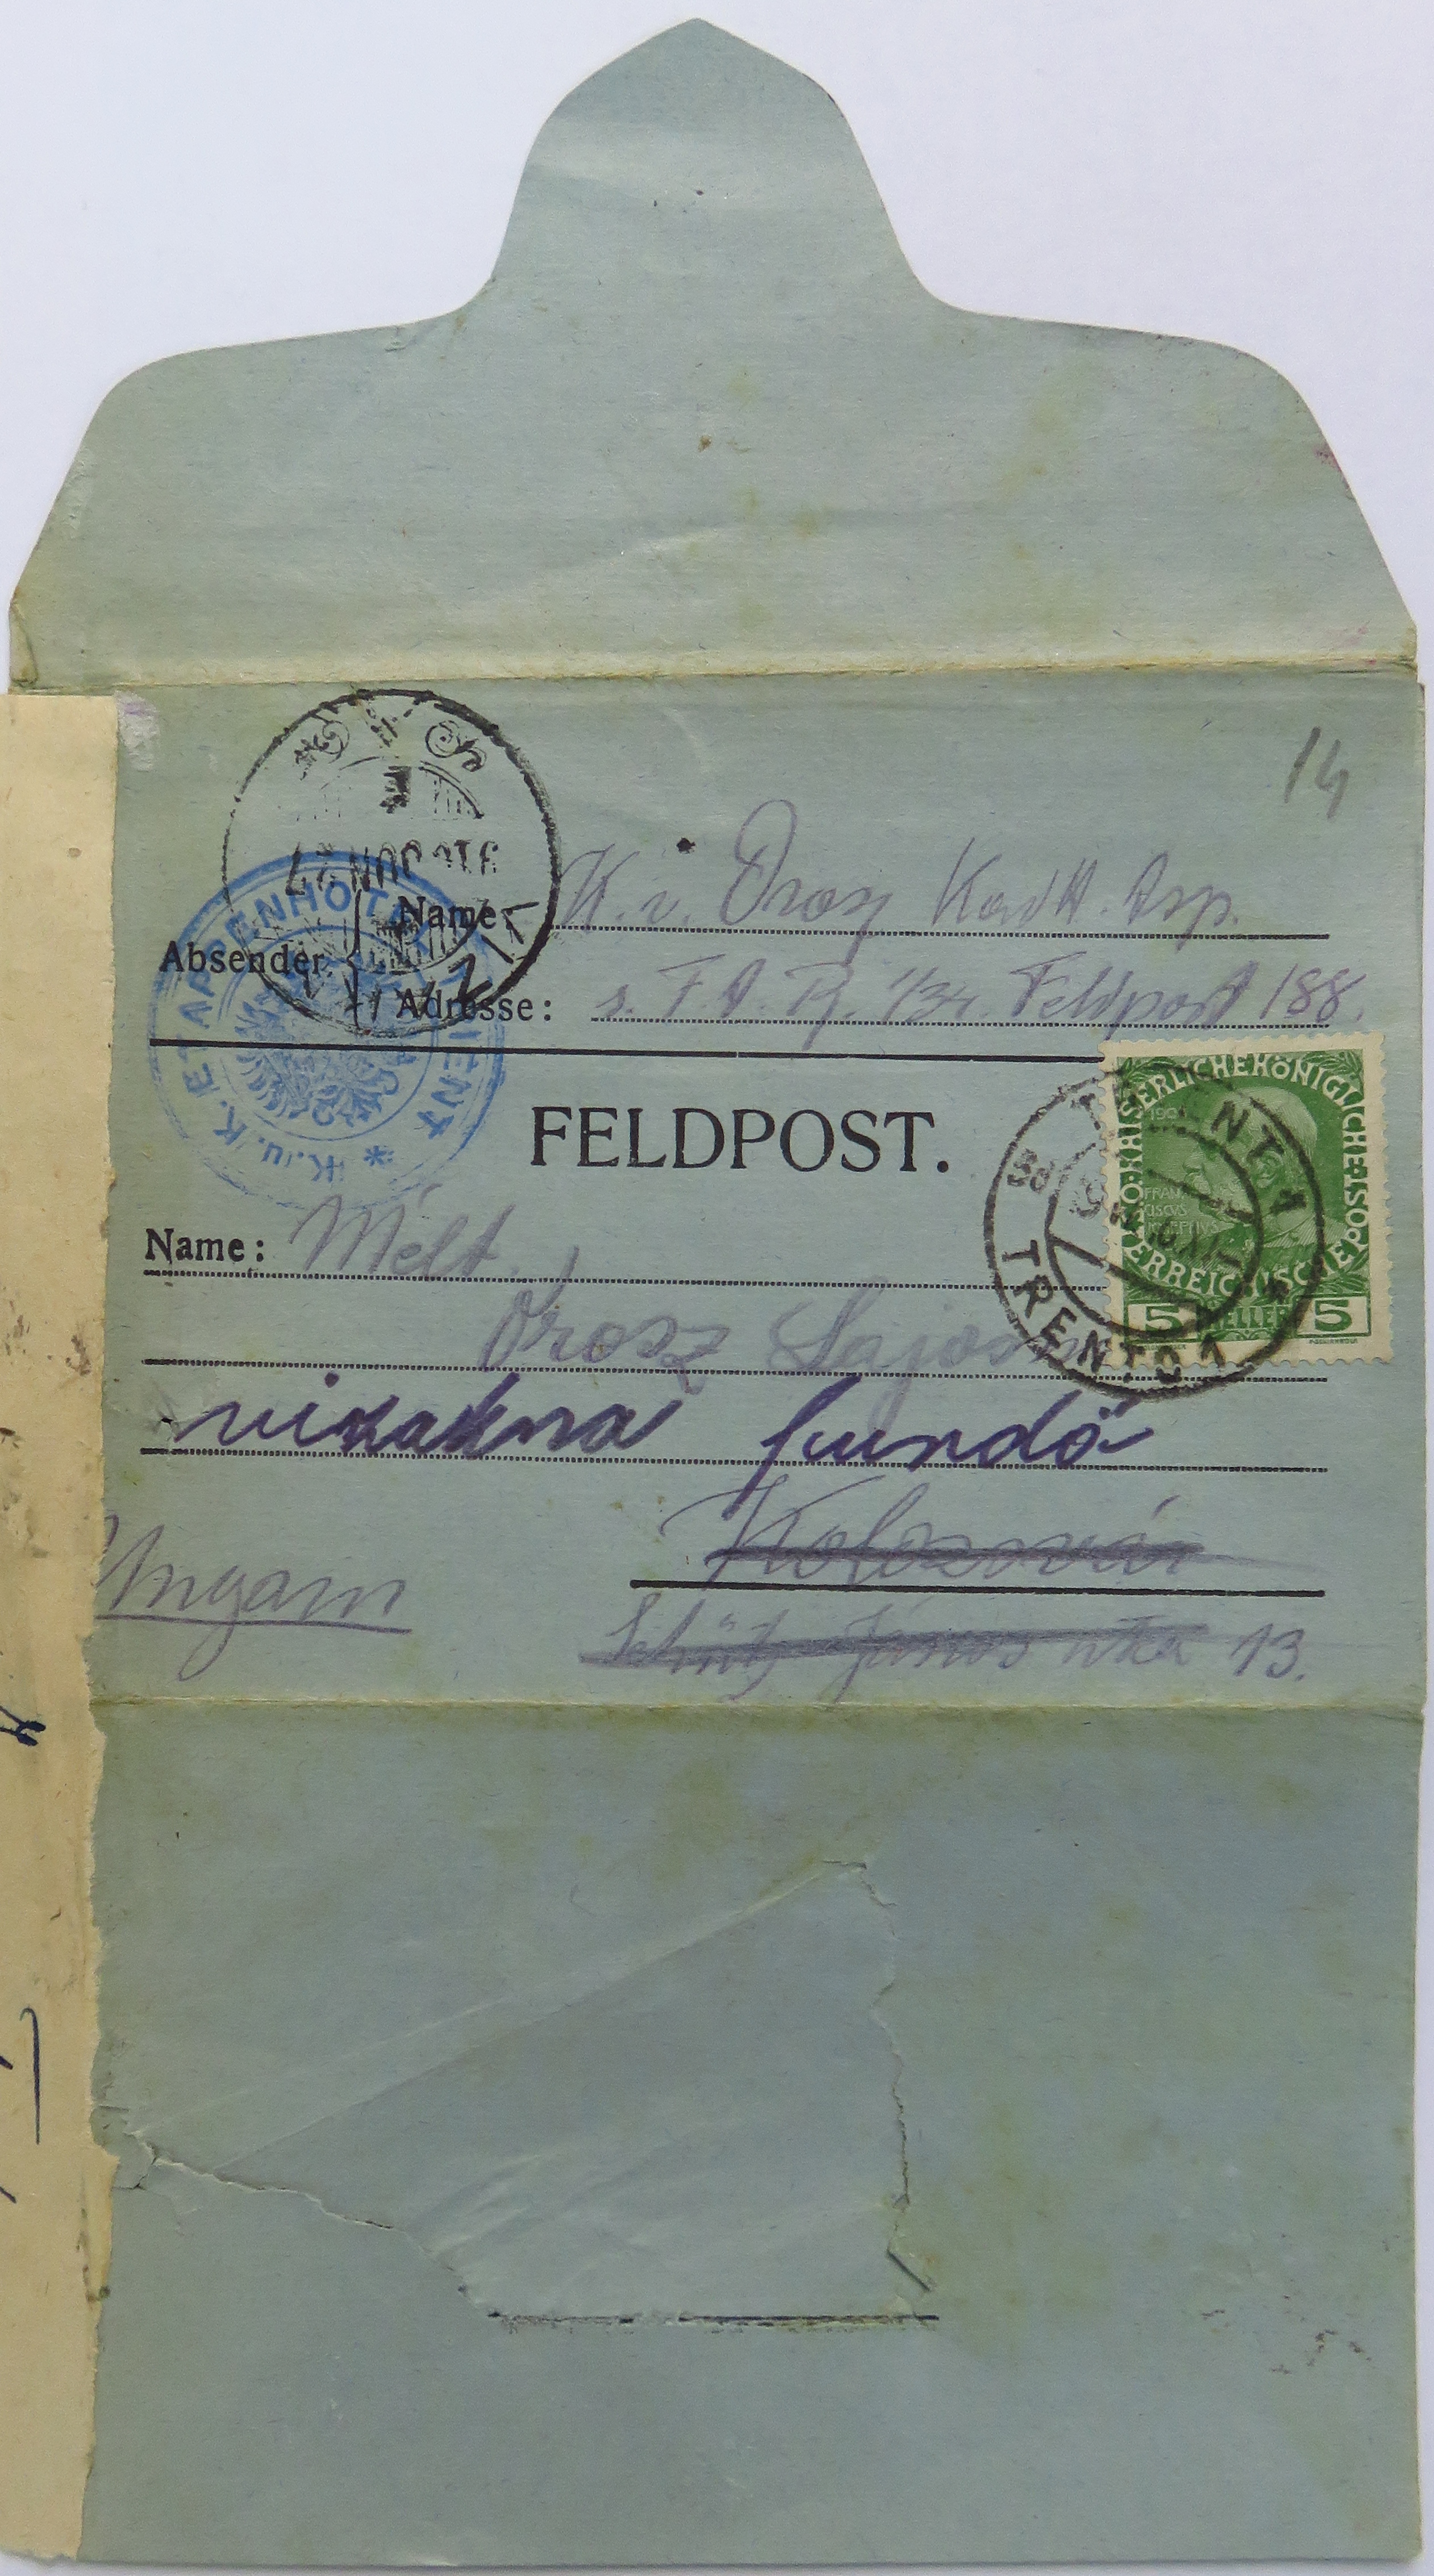 14
Absender
Name: K. v. Orosz Kadtt. Asp.
Adresse: s. F. A. R. 1/34. Feldpost 188.
K. u. K. ETAPPENHOTEL TRIENT *
FELDPOST.
KAISERLICHE KÖNIGLICHE
ÖSTERREICHISCHE
FRAN
CISCUS
JOSEPHUS
5 HELLER 5
TRIENT 1
TRENTO 1
Name: Mélt.
Orosz Lajos
vizakna fürdő
Kolozsvár
Ungarn
János utca 13.